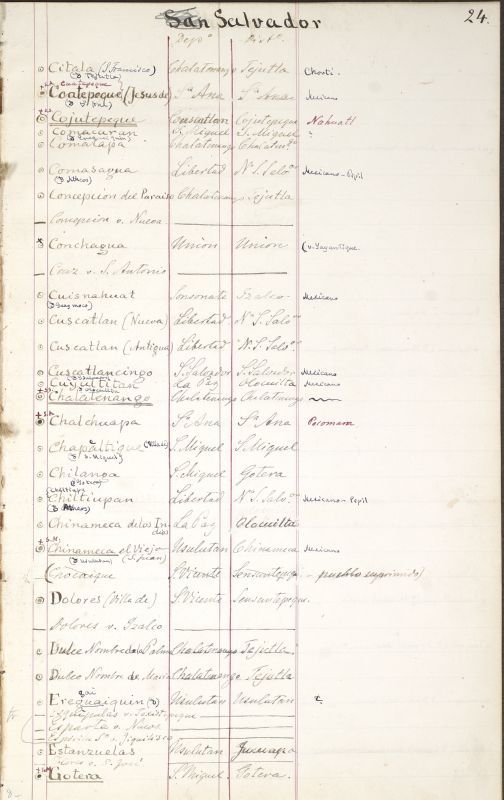 San Salvador 24.
Depo Disto
Citala (S. Francisco) Chalatenango Tejutla Chorti.
(D Tejutla)
Coatepeque
Coatepeque (Jesus de) Sta Ana Sta Ana Mexicano
Cojutepeque Cuscatlan Cojutepeque Nahuatl
Comacaran S. Miguel S. Miguel "
Comalapa Chalatenango Chalateno
Comasagua Libertad N. S. Salor Mexicano - Pipil
Concepcion del Paraiso Chalatenango Tejutla
Concepcion v. Nueva
Conchagua Union Union (v. Yayantique.
Cruz v. S. Antonio
Cuisnahuat Sonsonate Izalco Mexicano
Cuscatlan (Nueva) Libertad N. S. Salor
Cuscatlan (Antigua) Libertad N. S. Salor
Cuscatlancingo S. Salvador S. Salvador Mexicano
Cuyultitan La Paz Olocuilta Mexicano
Chalatenango Chalatenango Chalatenango
+ S.A.
Chalchuapa Sta Ana Sta Ana Pocomam
Chapaltique S. Miguel S. Miguel
(D S. Miguel)
Chilanga S. Miguel Gotera
Chiltiupan Libertad N. S. Salor Mexicano - Pipil
Chinameca de los In- La Paz Olocuilta
dios
+ S.M.
Chinameca el Viejo Usulutan Chinameca Mexicano
(S. Juan)
(Chocaique S. Vicente Sensuntepeque - pueblo suprimido)
Dolores (Villa de) S. Vicente Sensuntepeque.
Dolores v. Izalco
Dulce Nombre de la Palma Chalatenango Tejutla
Dulce Nombre de Maria Chalatenango Tejutla
Ereguaiquin Usulutan Usulutan
Esquipulas v.
Esparta v. Nueva
Espiritu Sto v. Jiquilisco
Estanzuelas Usulutan Jucuapa
v. S. José
Gotera S. Miguel Gotera.